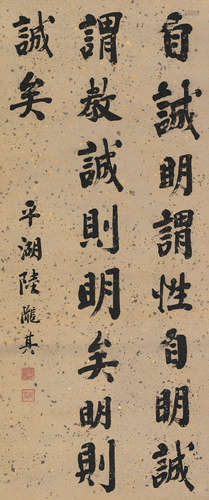 自誠明謂性自明誠
謂教誠則明矣明則
誠矣
平湖陸隴其